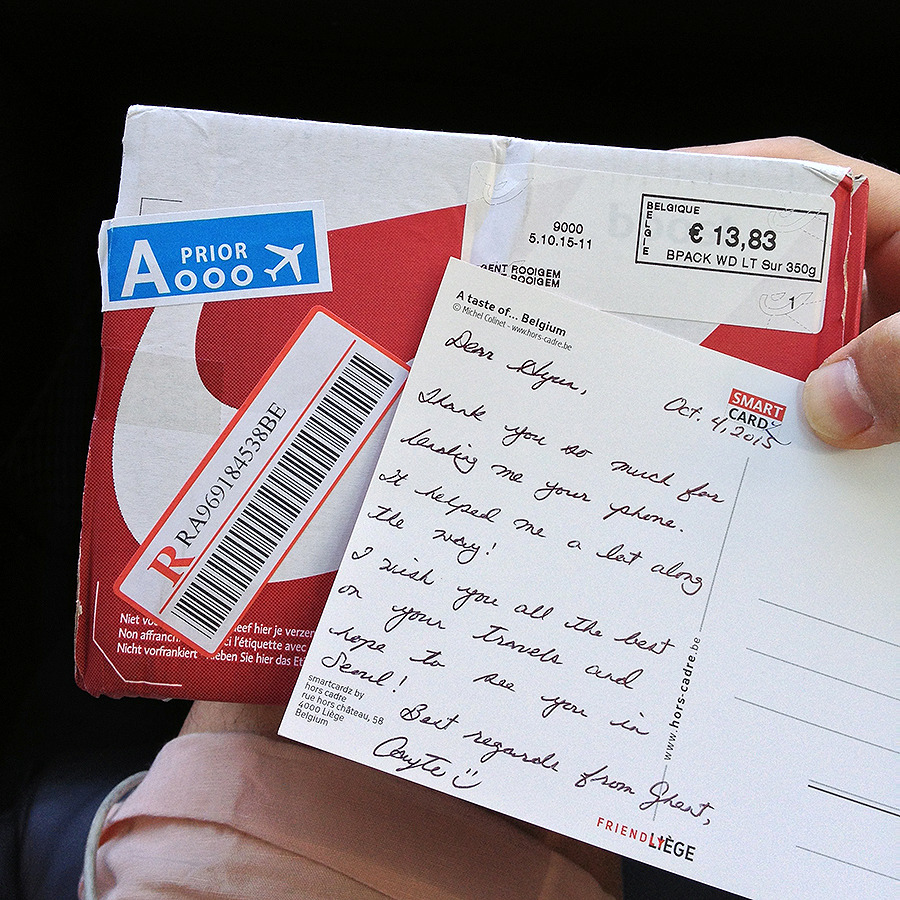 A PRIOR
9000
5.10.15-11
GENT ROOIGEM
ROOIGEM
BELGIQUE
BELGIE
€ 13,83
BPACK WD LT Sur 350g
1
R RA969184538BE
Niet eef hier je verzen
Non affranchi ci l'étiquette avec
Nicht vorfrankiert leben Sie hier das Eti
A taste of... Belgium
© Michel Colinet - www.hors-cadre.be
SMART
CARDZ
Oct. 4, 2015
Dear Hyun,
Thank you so much for
lending me your phone.
It helped me a lot along
the way!
I wish you all the best
on your travels and
hope to see you in
Seoul!
Best regards from Ghent,
smartcardz by
hors cadre
rue hors château, 58
4000 Liège
Belgium
www.hors-cadre.be
FRIENDLIÈGE